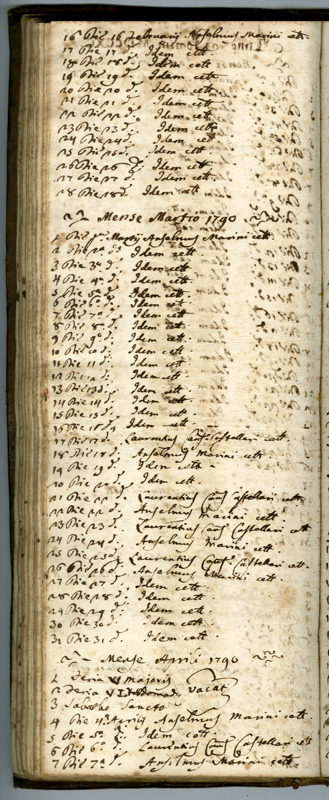 16 Die 16 Februarij Anselmus Marini cett.
17 Die 17 d. Idem cett.
18 Die 18 d. Idem cett.
19 Die 19 d. Idem cett.
20 Die 20 d. Idem cett.
21 Die 21 d. Idem cett.
22 Die 22 d. Idem cett.
23 Die 23 d. Idem cett.
24 Die 24 d. Idem cett.
25 Die 25 d. Idem cett.
26 Die 26 d. Idem cett.
27 Die 27 d. Idem cett.
28 Die 28 d. Idem cett.
Mense Martio 1790
1 Die 1a Martij Anselmus Marini cett.
2 Die 2a d. Idem cett.
3 Die 3a d. Idem cett.
4 Die 4a d. Idem cett.
5 Die 5a d. Idem cett.
6 Die 6a d. Idem cett.
7 Die 7a d. Idem cett.
8 Die 8a d. Idem cett.
9 Die 9a d. Idem cett.
10 Die 10 d. Idem cett.
11 Die 11 d. Idem cett.
12 Die 12 d. Idem cett.
13 Die 13 d. Idem cett.
14 Die 14 d. Idem cett.
15 Die 15 d. Idem cett.
16 Die 16 d. Idem cett.
17 Die 17 d. Laurentius Castellari cett.
18 Die 18 d. Anselmus Marini cett.
19 Die 19 d. Idem cett.
20 Die 20 d. Idem cett.
21 Die 21 d. Laurentius Castellari cett.
22 Die 22 d. Anselmus Marini cett.
23 Die 23 d. Laurentius Castellari cett.
24 Die 24 d. Anselmus Marini cett.
25 Die 25 d. Laurentius Castellari cett.
26 Die 26 d. Anselmus Marini cett.
27 Die 27 d. Idem cett.
28 Die 28 d. Idem cett.
29 Die 29 d. Idem cett.
30 Die 30 d. Idem cett.
31 Die 31 d. Idem cett.
Mense Aprili 1790
1 Feria V Majoris
2 Feria VI vacat
3 Sabatho Sancto
4 Die 4a Aprilis Anselmus Marini cett.
5 Die 5a d. Idem cett.
6 Die 6a d. Laurentius Castellari cett.
7 Die 7a d. Anselmus Marini cett.